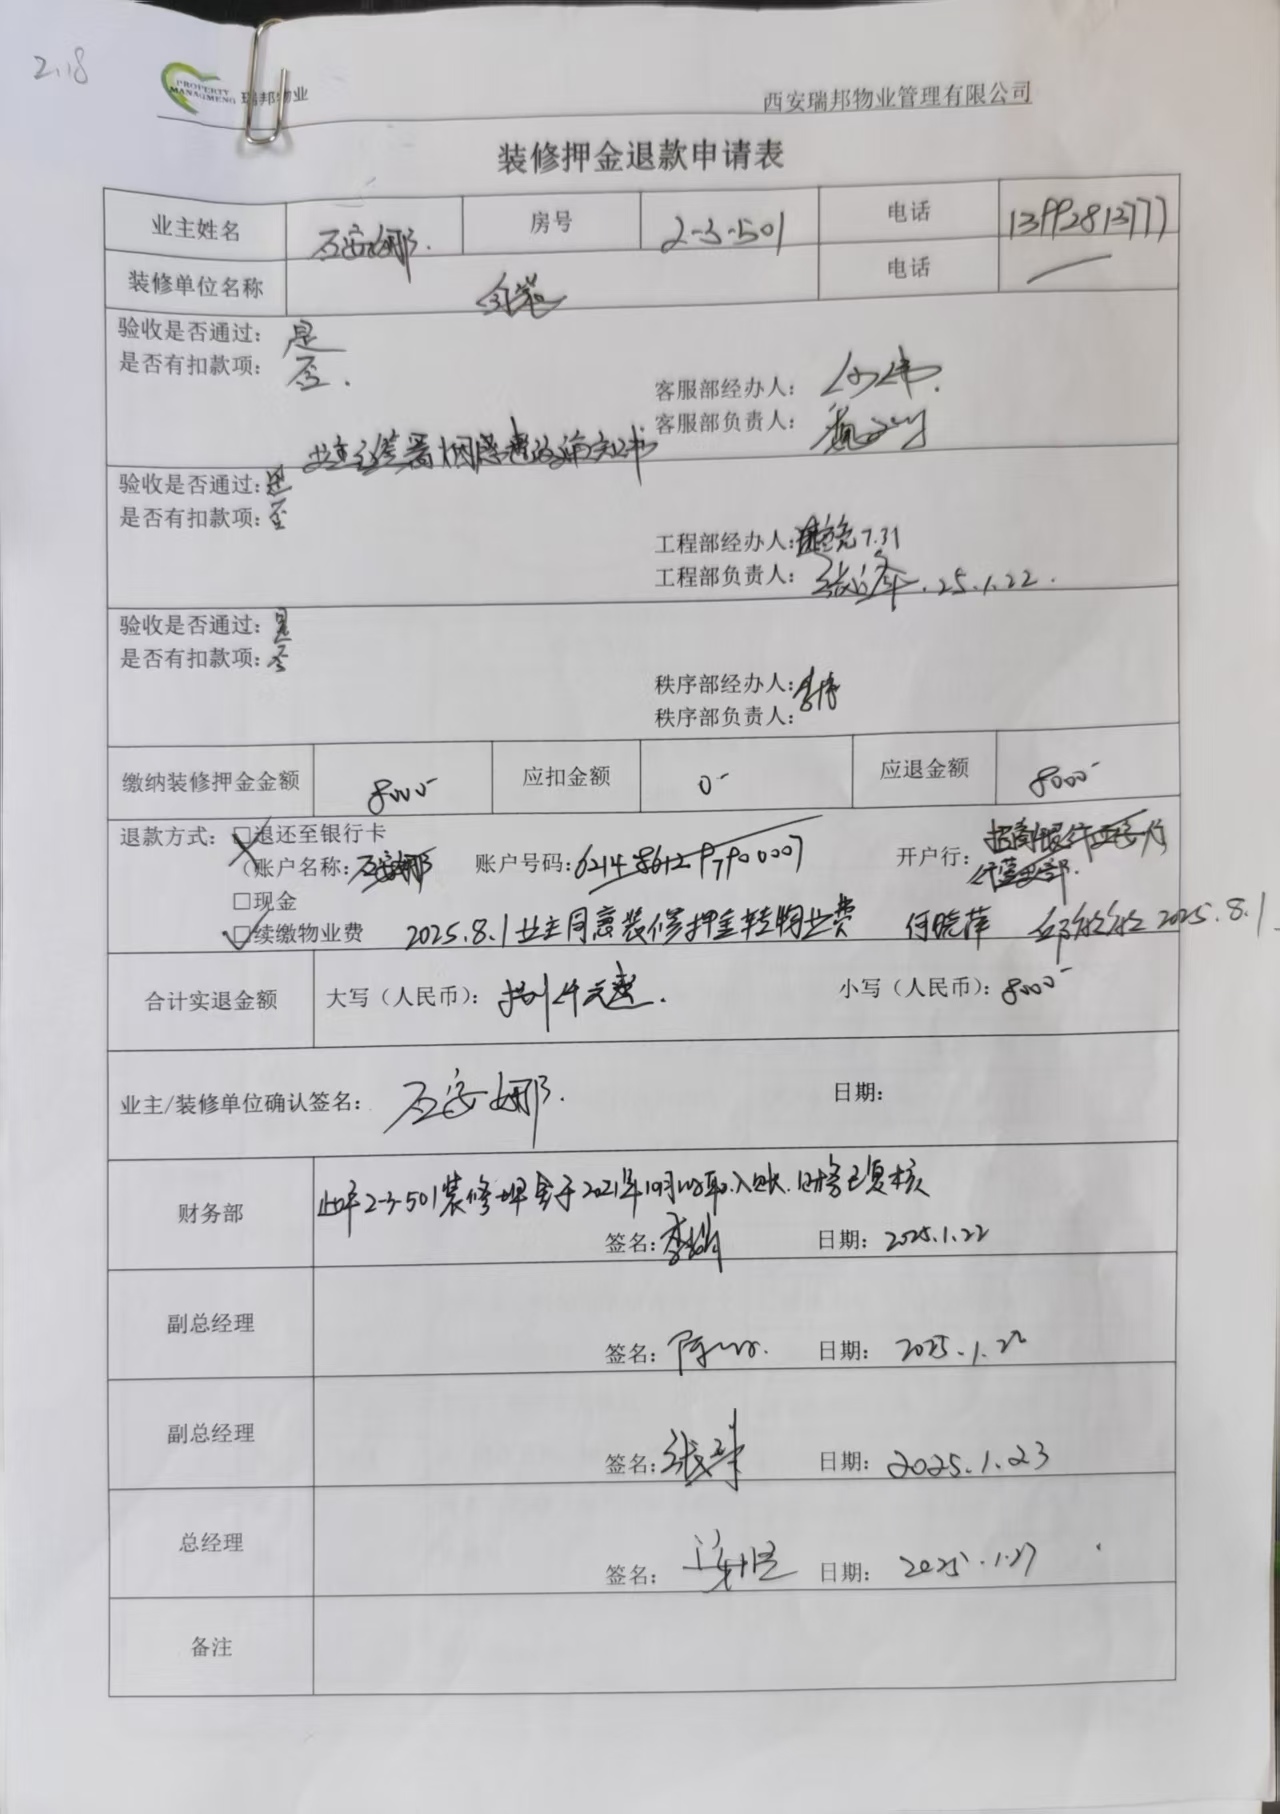 2.18
PROPERTY
MANAGMENG 瑞邦物业
西安瑞邦物业管理有限公司
装修押金退款申请表
业主姓名 石安娜. 房号 2-3-501 电话 13992813777
装修单位名称 自装 电话
验收是否通过: 是
是否有扣款项: 否.
客服部经办人:
客服部负责人:
业主已签署烟感遮改通知书
验收是否通过:
是否有扣款项: 否
工程部经办人: 7.31
工程部负责人: 25.1.22.
验收是否通过: 是
是否有扣款项: 否
秩序部经办人:
秩序部负责人:
缴纳装修押金金额 8000- 应扣金额 0- 应退金额 8000-
退款方式: □退还至银行卡
(账户名称: 石安娜 账户号码: 6214 8612 9790 0007 开户行: 招商银行西安分行营业部.
□现金
□续缴物业费 2025.8.1业主同意装修押金转物业费 何晓萍 2025.8.1
合计实退金额 大写(人民币): 捌仟元整. 小写(人民币): 8000-
业主/装修单位确认签名: 石安娜. 日期:
财务部 此户2-3-501装修押金于2021年10月 入账.财务已复核
签名: 日期: 2025.1.22
副总经理 签名: 日期: 2025.1.22
副总经理 签名: 日期: 2025.1.23
总经理 签名: 日期: 2025.1.27
备注